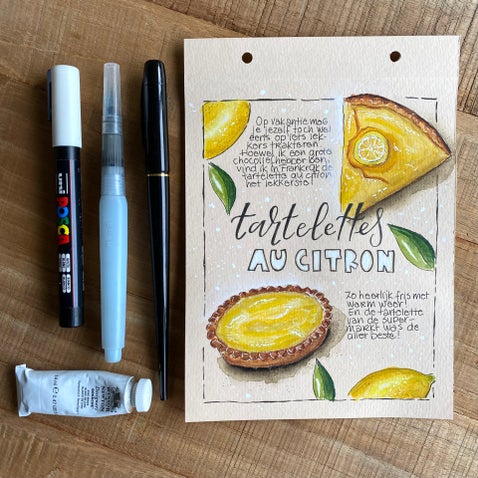 Op vakantie mag
je jezelf toch wel
eens op iets lek-
kers trakteren.
Hoewel ik een grote
chocoliefhebber ben,
vind ik in Frankrijk de
tartelette au citron
het lekkerste!
tartelettes
AU CITRON
Zo heerlijk fris met
warm weer!
En de tartelette
van de super-
markt was de
aller beste!
uni
POSCA